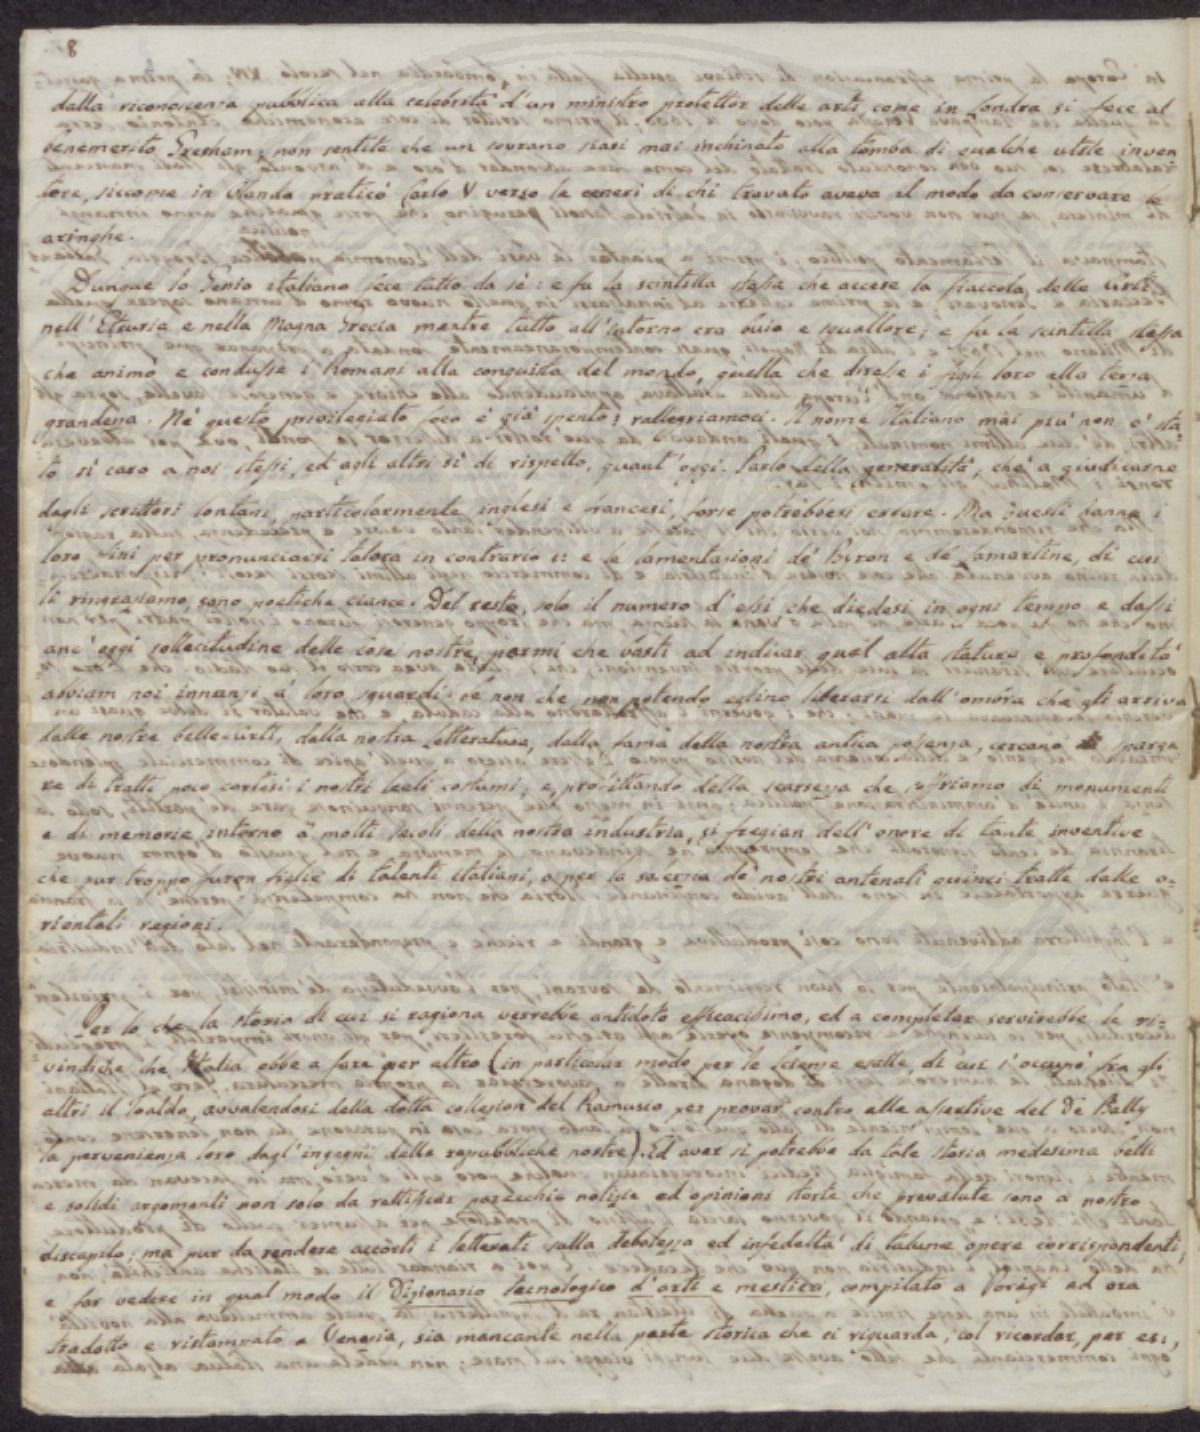 8
dalla riconoscenza pubblica alla celebrità d'un ministro protettor delle arti, come in Londra si fece al
benemerito Gresham; non sentite che un sovrano siasi mai inchinato alla tomba di qualche utile inven
tore, siccome in Olanda praticò Carlo V verso le ceneri di chi trovato aveva il modo da conservare le
aringhe.
Dunque lo Genio italiano fece tutto da sè: e fu la scintilla stessa che accese la fiaccola delle Arti
nell'Etruria e nella Magna Grecia mentre tutto all'intorno era buio e squallore; e fu la scintilla stessa
che animò e condusse i Romani alla conquista del mondo, quella che diresse i figli loro alla terza
grandezza. Nè questo privilegiato foco è già spento: rallegriamoci. Il nome Italiano mai più non è sta
to sì caro a noi stessi, ed agli altri sì di rispetto, quant'oggi. Parlo della generalità, chè a giudicarne
dagli scrittori lontani, particolarmente inglesi e francesi, forse potrebbesi errare. Ma questi hanno i
loro fini per pronunciarsi talora in contrario: e le lamentazioni de' Byron e de' Lamartine, di cui
li ringraziamo, sono poetiche ciance. Del resto, solo il numero d'essi che diedesi in ogni tempo e dassi
anc'oggi sollecitudine delle cose nostre, parmi che basti ad indicar qual alta statura e profondità
abbiam noi innanzi a' loro sguardi: se non che non potendo eglino liberarsi dall'ombra che gli arriva
dalle nostre belle-arti, dalla nostra letteratura, dalla fama della nostra antica possanza, cercano sparge
re di tratti poco cortesi i nostri begli costumi; e, profittando della scarsezza che soffriamo di monumenti
e di memorie intorno a' molti secoli della nostra industria, si fregian dell'onore di tante inventive
che pur troppo furon figlie di talenti italiani, o per la saggezza de' nostri antenati quinci tratte dalle o-
rientali regioni.
Per lo che la storia di cui si ragiona verrebbe antidoto efficacissimo, ed a completar servirebbe le ri-
vindiche che Italia ebbe a fare per altro (in particolar modo per le scienze esatte, di cui s'occupò fra gli
altri il Toaldo, avvalendosi della dotta collezion del Ramusio per provar contro alle assertive del De Bally
la pervenienza loro dagl'ingegni delle repubbliche nostre). Ed aver si potrebbe da tale storia medesima belli
e solidi argomenti non solo da rettificar parecchie notizie ed opinioni storte che prevalute sono a nostro
discapito; ma pur da rendere accorti i letterati sulla debolezza ed infedeltà di talune opere corrispondenti,
e far vedere in qual modo il Dizionario tecnologico d'arti e mestieri, compilato a Parigi ed ora
tradotto e ristampato a Venezia, sia mancante nella parte storica che ci riguarda, col ricordar, per es:,